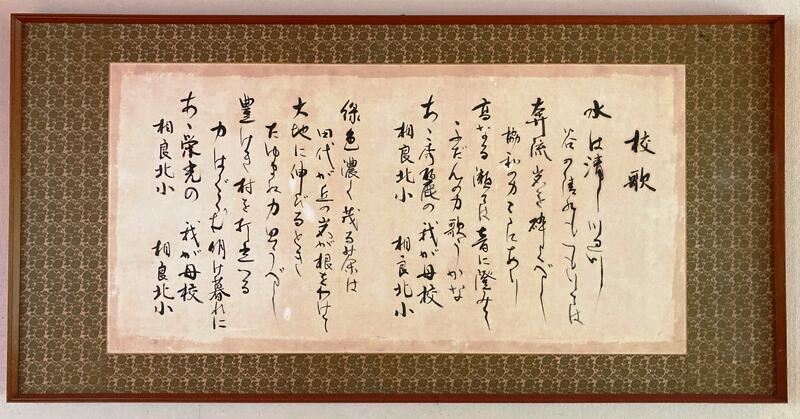 校歌
水は清し川
谷の
奔流岩を砕くべし
協和の力ここにあり
高なる瀬は音に澄みて
ふだんの力歌うかな
あゝ秀麗の 我が母校
相良北小 相良北小
緑色濃く茂る
田代が丘の岩が根をわけて
大地に伸びるとき
たゆまぬ力思うべし
豊けき村を打
力はぐくむ明け暮れに
あゝ栄光の 我が母校
相良北小 相良北小